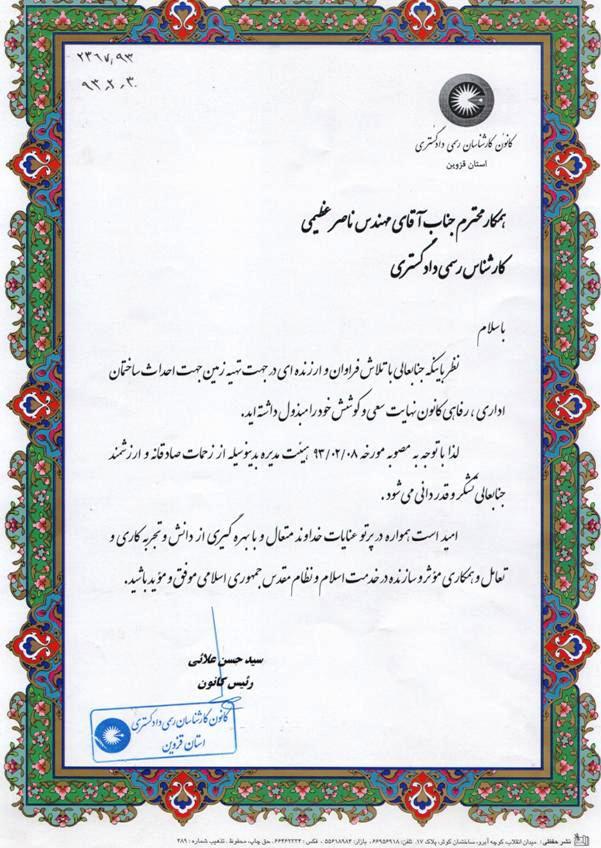 ۲۳۶۷٫۹۳
۹۳٫۲٫۳۰
کانون کارشناسان رسمی دادگستری
استان قزوین
همکار محترم جناب آقای مهندس ناصر عظیمی
کارشناس رسمی دادگستری
باسلام
نظر باینکه جنابعالی با تلاش فراوان و ارزنده ای در جهت تهیه زمین جهت احداث ساختمان
اداری ، رفاهی کانون نهایت سعی و کوشش خود را مبذول داشته اید.
لذا با توجه به مصوبه مورخه ۹۳/۰۲/۰۸ هیئت مدیره بدینوسیله از زحمات صادقانه و ارزشمند
جنابعالی تشکر و قدردانی می شود .
امید است همواره در پرتو عنایات خداوند متعال و با بهره گیری از دانش و تجربه کاری و
تعامل و همکاری مؤثر و سازنده در خدمت اسلام و نظام مقدس جمهوری اسلامی موفق و مؤید باشید.
سید حسن علائی
رئیس کانون
کانون کارشناسان رسمی دادگستری
استان قزوین
نشر حفظی : میدان انقلاب، کوچه آبرو، ساختمان کوثر، پلاک ۱۷، تلفن: ۶۶۹۵۶۹۱۸، بازار: ۵۵۶۱۸۹۸۴ ، فکس : ۶۶۴۶۲۲۲۴، حق چاپ، محفوظ . تذهیب شماره : ۴۸۹